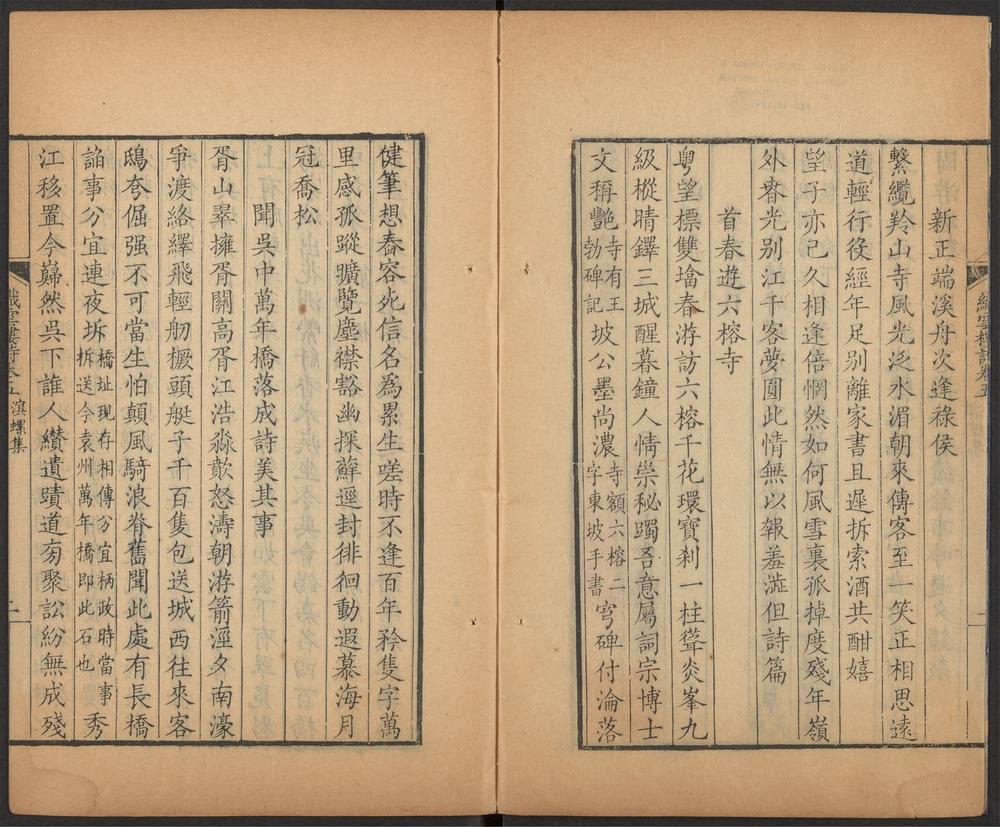 新正端溪舟次逢祿侯
繫纜羚山寺風光泛水湄朝來傳客至一笑正相思遠
道輕行役經年足别離家書且遲拆索酒共酣嬉
望子亦已久相逢倍惘然如何風雪裏孤掉度殘年嶺
外春光别江干客夢圓此情無以報羞澁但詩篇
首春遊六榕寺
粤望標雙墖春游訪六榕千花環寶刹一柱聳炎峯九
級樅晴鐸三城醒暮鐘人情崇秘躅吾意屬詞宗博士
文稱艷寺有王勃碑記坡公墨尚濃寺額六榕二字東坡手書穹碑付淪落
健筆想春容死信名為累生嗟時不逢百年矜隻字萬
里感孤蹤曠覽塵襟豁幽探蘚逕封徘徊動遐慕海月
冠喬松
聞吳中萬年橋落成詩美其事
胥山翠擁胥關高胥江浩淼歕怒濤朝游箭涇夕南濠
爭渡絡繹飛輕舠橛頭艇子千百隻包送城西往來客
鴟夸倔强不可當生怕顛風騎浪脊舊聞此處有長橋
諂事分宜連夜坼橋址現存相傳分宜柄政時當事拆送今袁州萬年橋即此石也秀
江移置今巋然吳下誰人纘遺蹟道旁聚訟紛無成殘
織雲樓詩卷五
濱螺集
二